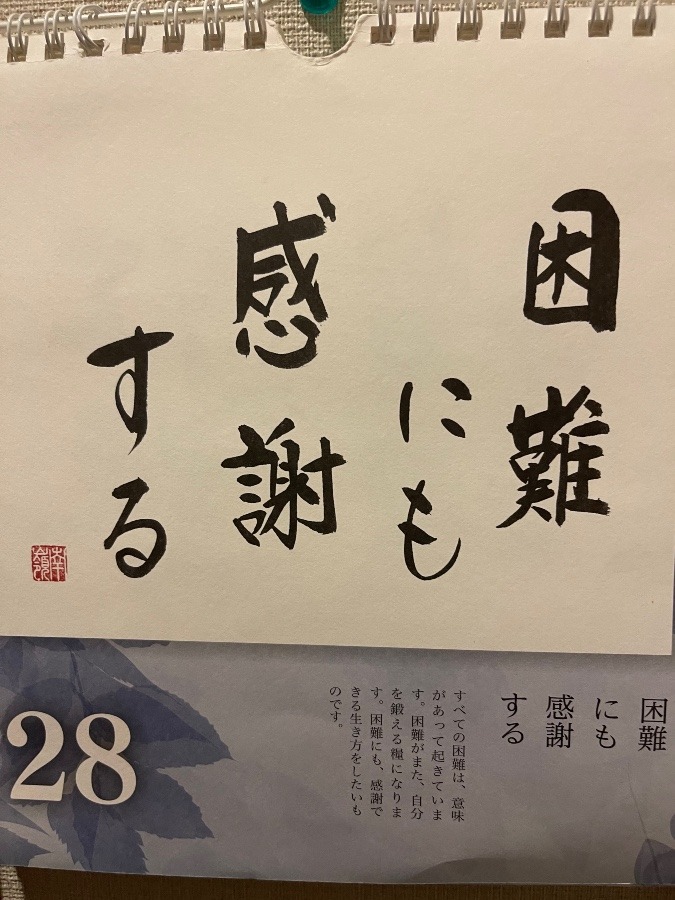 困難
にも
感謝
する
困難
にも
感謝
する
すべての困難は、意味
があって起きていま
す。困難がまた、自分
を鍛える糧になりま
す。困難にも、感謝で
きる生き方をしたいも
のです。
28